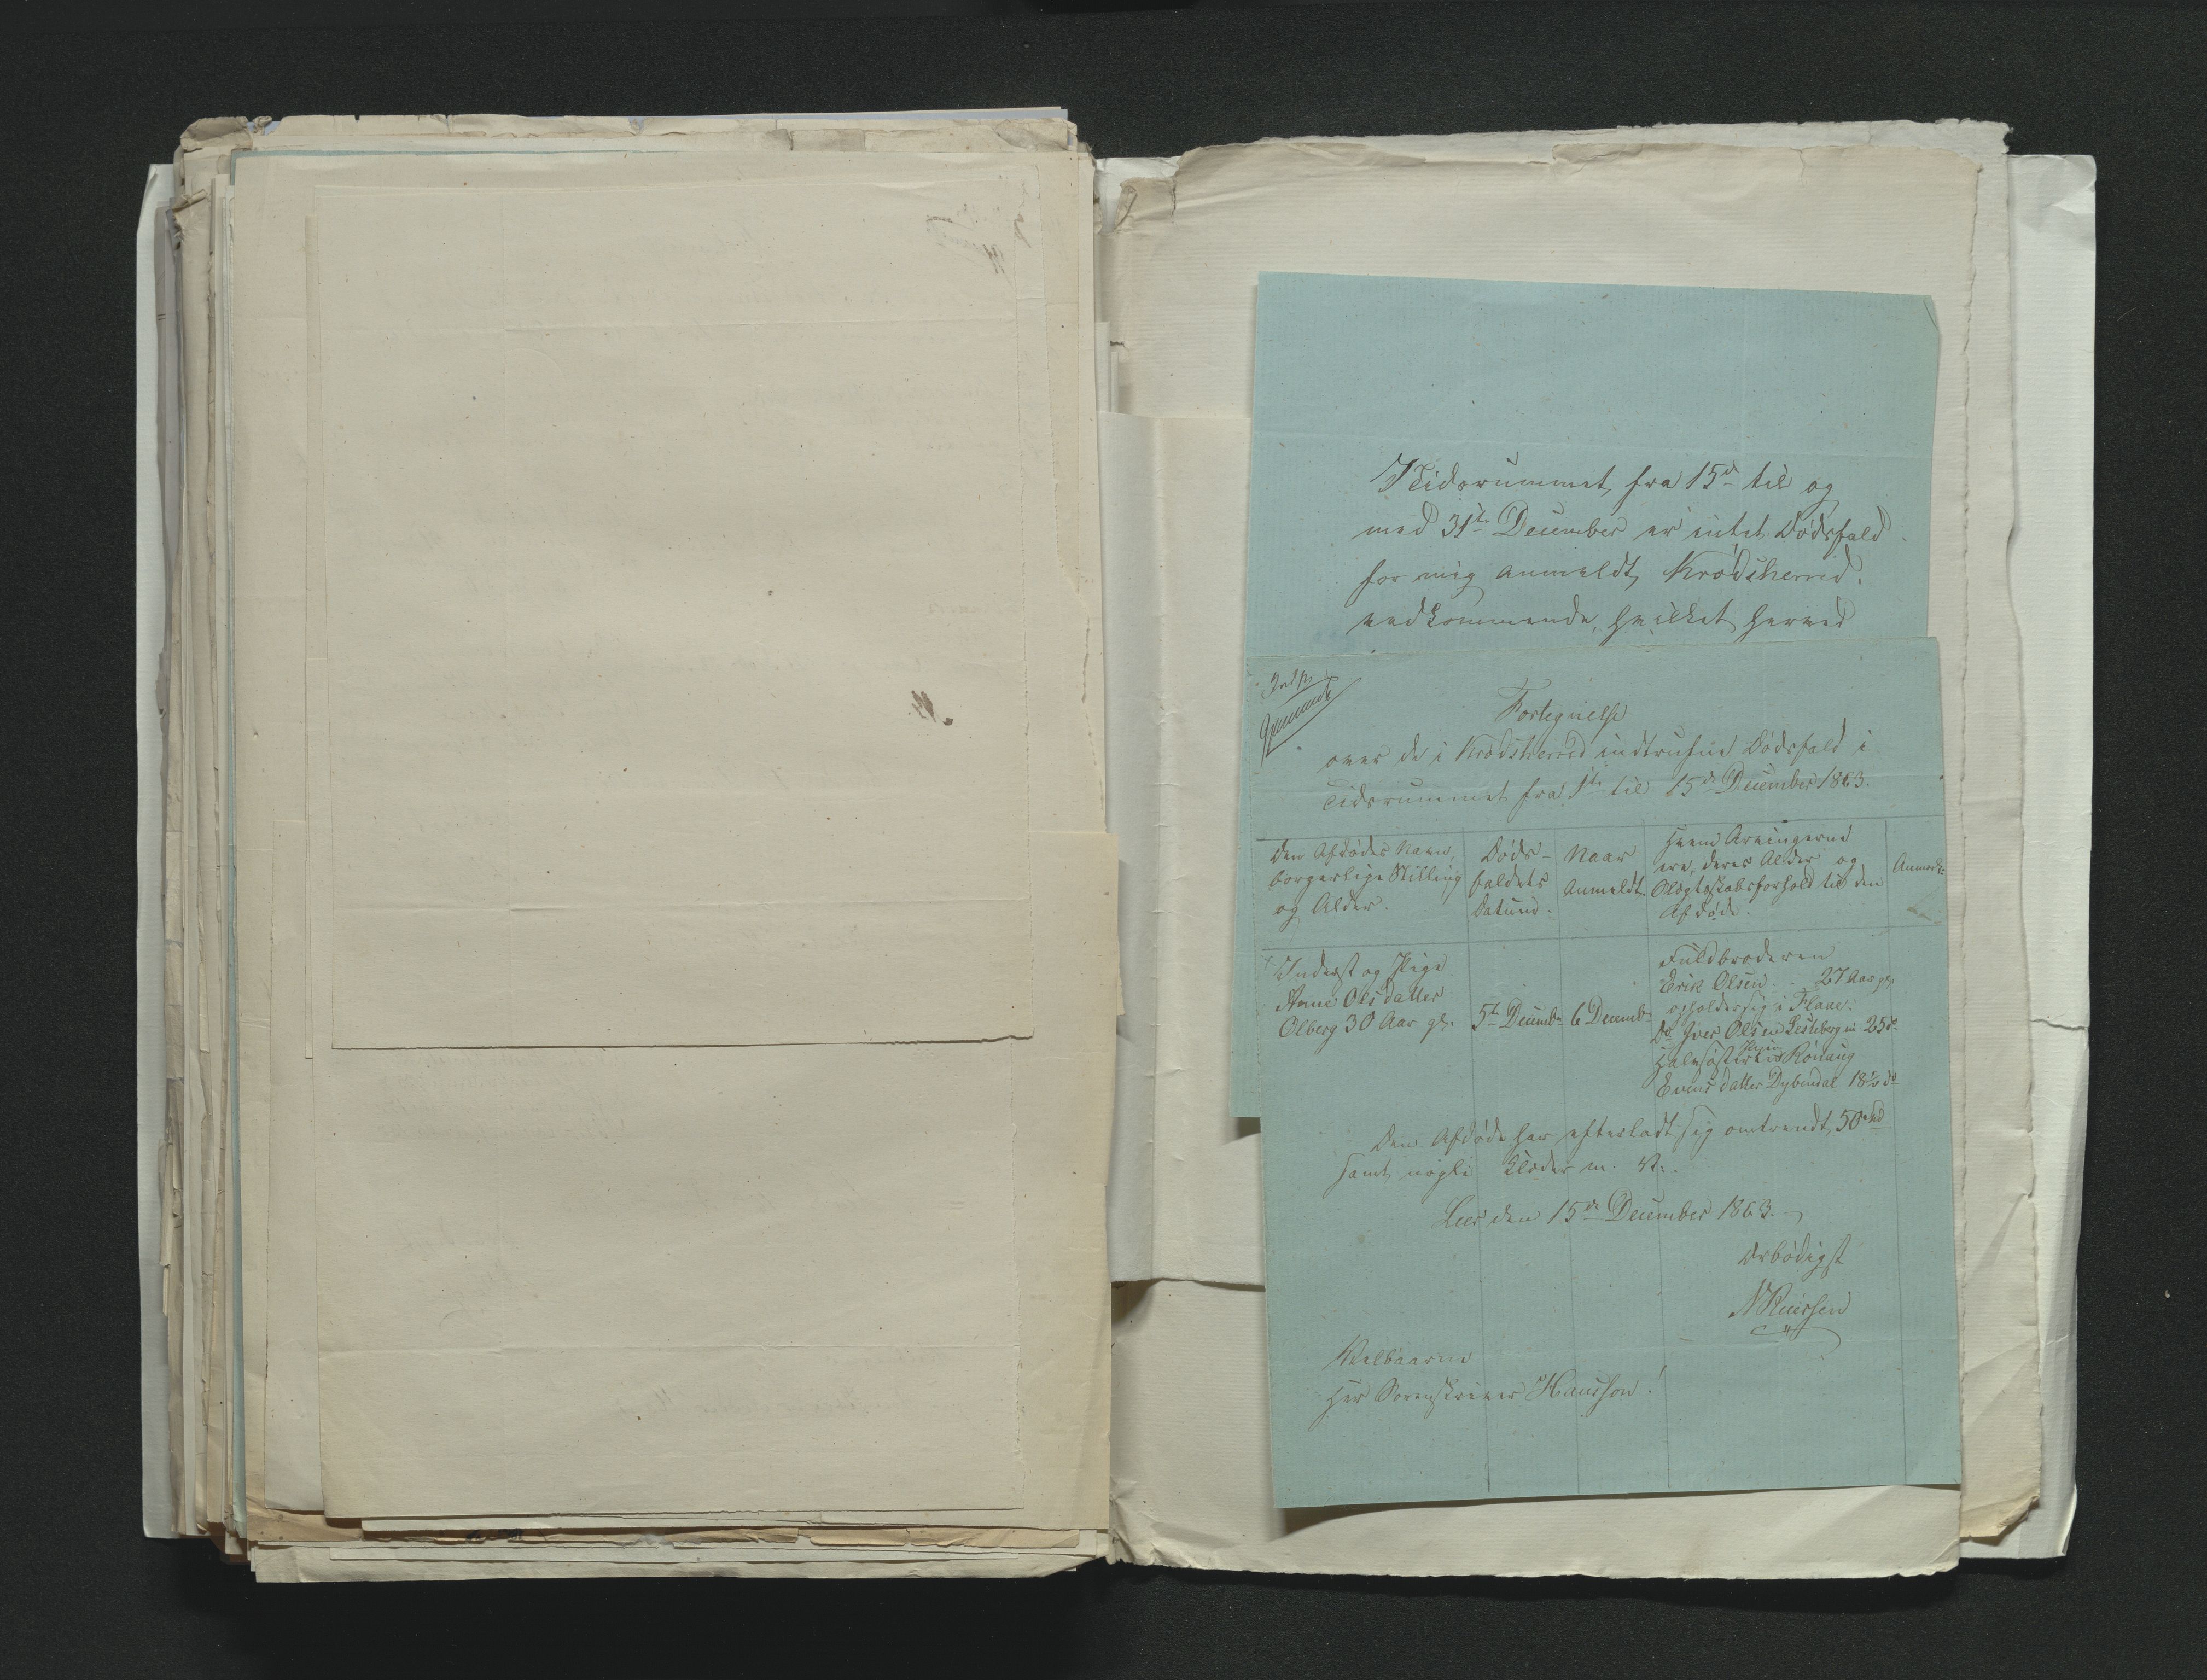 I Tidsrummet fra 15de til og
med 31te December er intet Dødsfald
for mig anmeldt, Krødsherred
vedkommende, hvilket herved
Indf.
Fortegnelse
over de i Krødsherred indtrufne Dødsfald i
Tidsrummet fra 1ste til 15de December 1863.
Den Afdødes Navn,
borgerlige Stilling
og Alder.
Døds-
faldets
Datum.
Naar
Anmeldt.
Hvem Arvingerne
ere, deres Alder og
Slægtskabsforhold til den
Afdøde.
Anmærk:
Inderst og Pige
Anne Olsdatter
Olberg 30 Aar gl.
5te Decembr
6 Decembr
Fuldbroderen
Erik Olsen 27 Aar gl.
opholder sig i Flaae.
Do Iver Olsen 25 do
Halvsøsteren Pigen Rønaug
Evensdatter Dybendal 18½ do
Den Afdøde har efterladt sig omtrendt, 50 Spd
samt nogle Klæder m. V.
Lees den 15de December 1863.
Ærbødigst
Velbaarne
Herr Sorenskriver Hansson!